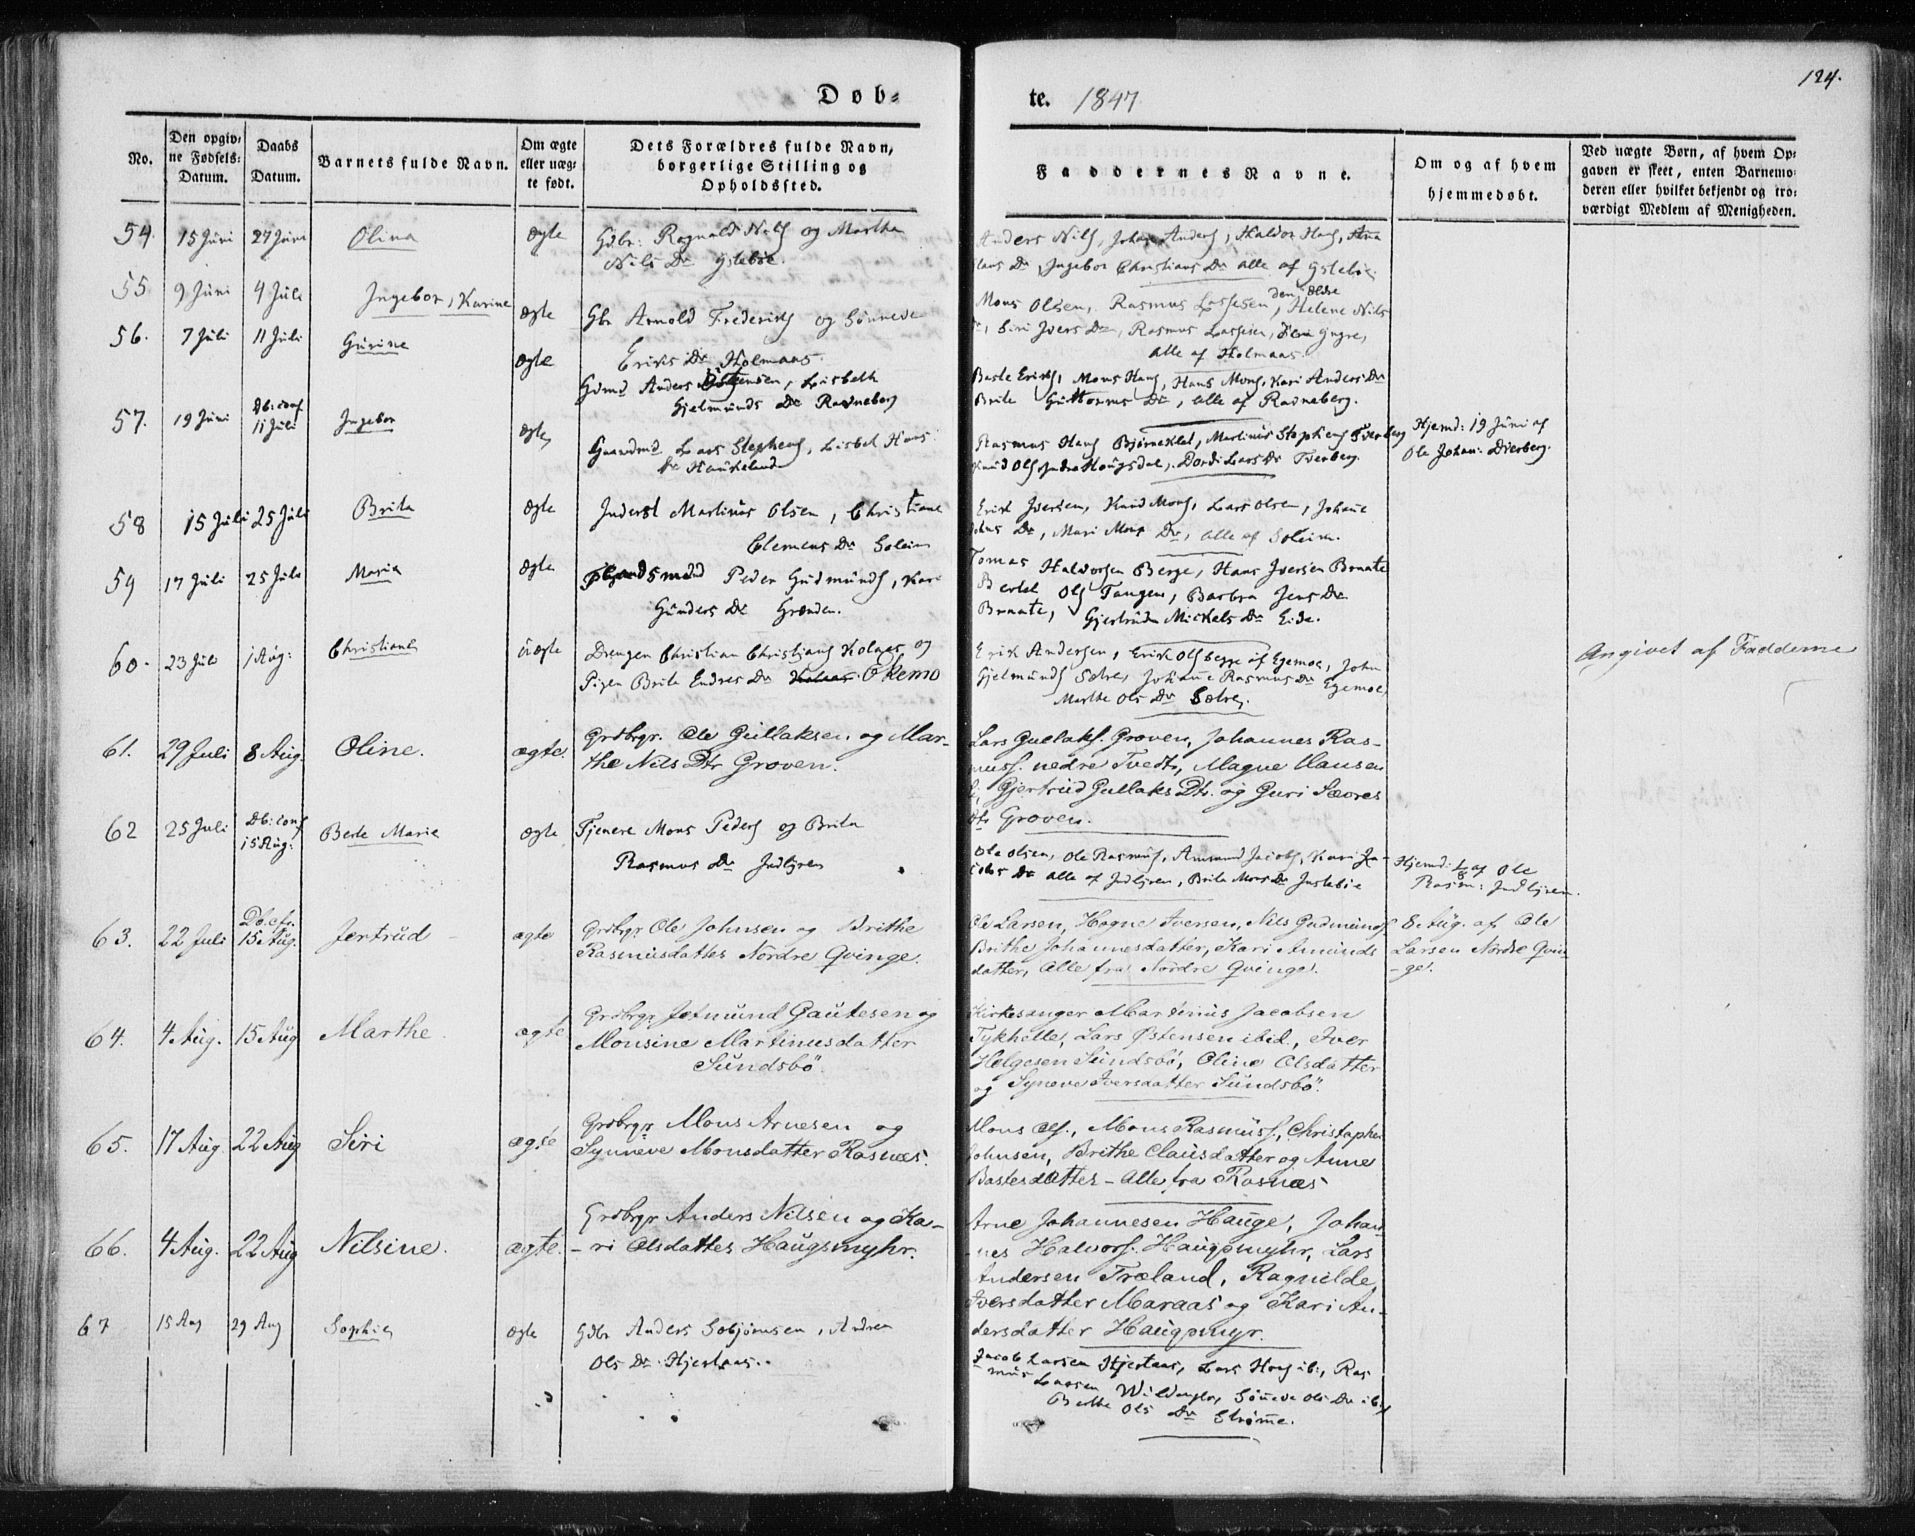 Døb-
te. 1847
124.
No.
Den opgiv-
ne Fødsels-
Datum.
Daabs
Datum.
Barnets fulde Navn.
Om ægte
eller uæg-
te født.
Dets Forældres fulde Navn,
borgerlige Stilling og
Opholdssted.
Faddernes Navne.
Om og af hvem
hjemmedøbt.
Ved uægte Børn, af hvem Op-
gaven er skeet, enten Barnemo-
deren eller hvilket bekjendt og tro-
værdigt Medlem af Menigheden.
54. 15 Juni 27 Juni Olina ægte Gdbr: Rognald Nils og Martha
Nils Dr Ystebøe.
Anders Nils, Johan Anders, Haldor Hans, Ana
Hans Dr, Ingebor Christians Dr alle af Ystebøe
55. 9 Juni 4 Juli Ingebor, Karine ægte Gbr Arnold Frederiks og Sønneve
Eriks Dr Holmaas.
Mons Olsen, Rasmus Lassesen den ældre, Helene Nils
Dr, Siri Ivers Dr, Rasmus Lassesen, den yngre,
alle af Holmaas.
56. 7 Juli 11 Juli Gurine ægte Gdmd Anders Østensen, Lisbeth
Gjelmunds Dr Radneberg
Baste Eriks, Mons Hans, Hans Mons, Kari Anders Dr
Brite Guttorms Dr, alle af Radneberg.
57. 19 Juni Db: conf
11 Juli Ingebor ægte Gaardmd Lars Stephens, Lisbet Hans
Dr Haukeland
Rasmus Hans Bjørneklet, Martinus Stephens Tverberg
Knud Ols Indre Hougsdal, Dordi Lars Dr Tverberg.
Hjemd: 19 Juni af
Ole Johan: Dverberg.
58 15 Juli 25 Juli Brita ægte Inderst Martinus Olsen, Christiane
Clemens Dr Soleim
Erik Iversen, Knud Mons, Lars Olsen, Johane
Johns Dr, Mari Mons Dr, alle af Soleim.
59 17 Juli 25 Juli Maria ægte Peder Gudmunds, Kari
Gunders Dr Grønden.
Tomas Halvorsen Berge, Hans Iversen Braate
Bertel Ols Tangen, Barbra Jens Dr
Braate, Gjertrude Mickels Dr Eide.
60. 23 Juli 1 Aug: Christiane uægte Drengen Christian Christians Kolaas og
Pigen Brite Endres Dr Okemo
Erik Andersen, Erik Ols begge af Egemoe, John
Gjelmunds Sælre, Johane Rasmus Dr Egemoe,
Marthe Ols Dr Sælre,
Angivet af Fadderne
61. 29 Juli 8 Aug. Oline. ægte. Grdbrgr. Ole Gullaksen og Mar-
the Nils Dtr Groven.
Lars Gullaks. Groven, Johannes Ras-
muss. nedre Tvedt, Magne Clausen
Gjertrud Gullaks Dtr. og Guri Sævres
Dtr Groven.
62 25 Juli Db: conf
15 Aug: Berte Marie ægte Tjenere Mons Peders og Brita
Rasmus Dr Indbjren
Ole Olsen, Ole Rasmus, Amund Jacobs, Kari Ja-
cobs Dr alle af Indbjren, Brite Mons Dr Justebøe
Hjemd: 1/8 af Ole
Rasm: Indbjren.
63. 22 Juli Db. cfr.
15 Aug. Jertrud ægte Grdbrgr Ole Johnsen og Brithe
Rasmusdatter Nordre Qvinge.
Ole Larsen, Hogne Iversen, Nils Gudmunds.
Brithe Johannesdatter, Kari Amunds
datter, Alle fra Nordre Qvinge.
8. Aug. af Ole
Larsen Nordre Qvin-
ge.
64. 4 Aug. 15 Aug Marthe ægte Grdbrgr Jetmund Gautesen og
Monsine Martinusdatter
Sundsbö.
Kirkesanger Martinus Jacobsen
Tykhelle, Lars Østensen ibid., Iver
Helgesen Sundsbö, Oline Olsdatter
og Syneve Iversdatter Sundsbö.
65. 17 Aug. 22 Aug Siri ægte Grdbrgr Mons Arnesen og
Synneve Monsdatter Rasnæs.
Mons Ols., Mons Rasmuss., Christopher
Johnsen, Brithe Clausdatter og Anne
Bastesdatter - Alle fra Rasnæs
66. 4 Aug. 22 Aug Nilsine. ægte. Grdbrgr Anders Nilsen og Ka-
ri Olsdatter Haugsmyhr.
Arne Johannesen Hauge, Johan-
nes Halvors. Haugsmyhr, Lars
Andersen Træland, Ragnilde
Iversdatter Maraas og Kari An-
dersdatter Haugsmyr.
67 15 Aug 29 Aug Sophie ægte Gdbr Anders Sebjørnsen, Andrea
Ols Dr Hjertaas.
Jacob Larsen Hjertaas, Lars Hans ib:, Ras
mus Larsen, Sønneve Ols Dr ibd
Berthe Ols Dr Strømme.